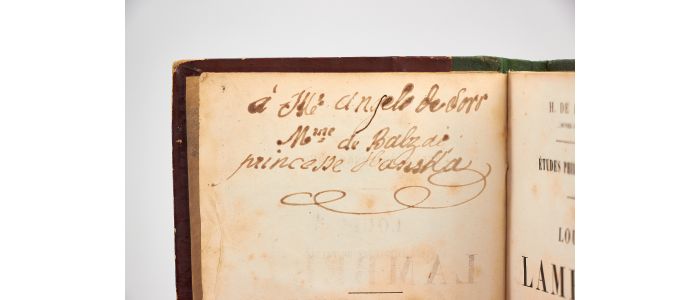 à Mr Angelo de Sorr
Mme de Balzac
princesse Hanska
H. DE
ÉTUDES PHI
LOU
LAMB